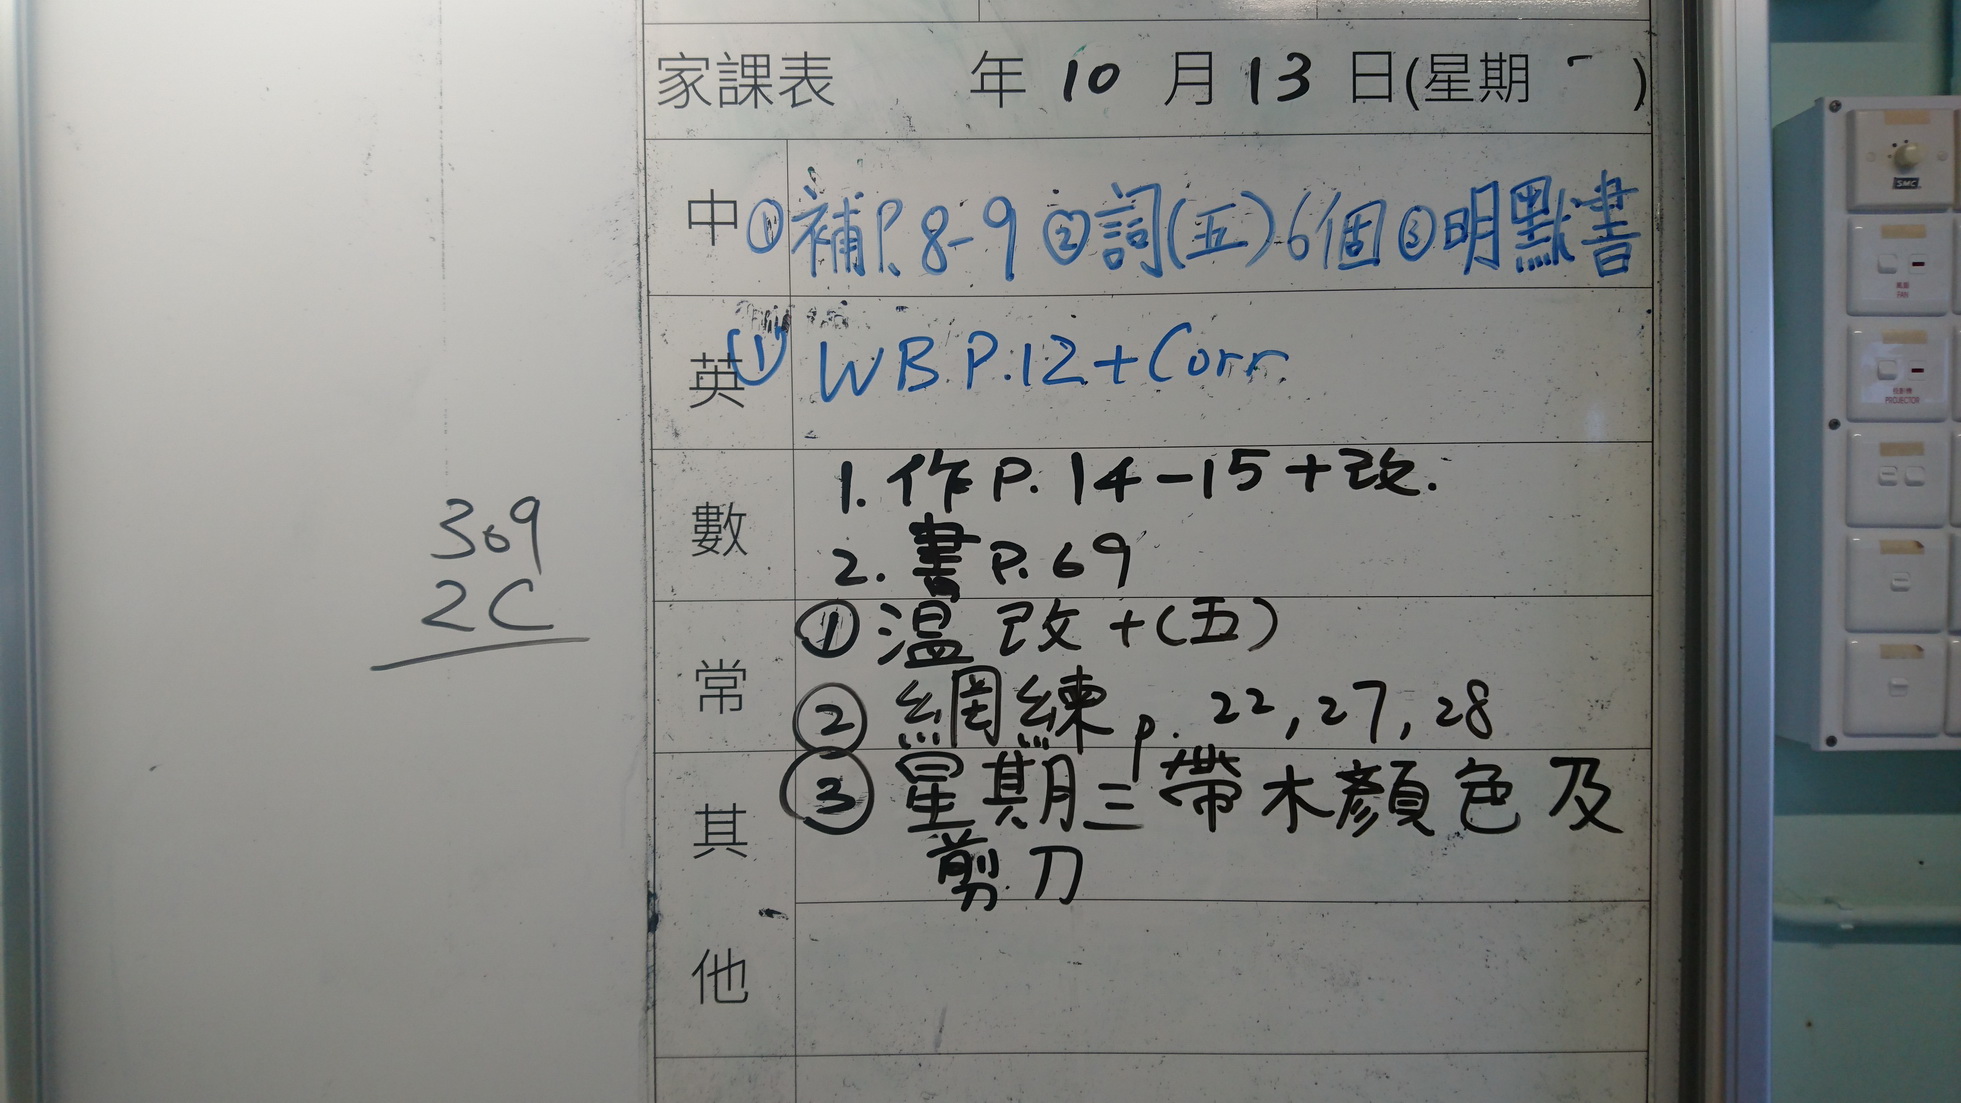 家課表 年 10 月 13 日(星期 一 )
中 ①補P.8-9 ②詞(五)6個 ③明默書
英 (1) WB P.12+Corr
數 1. 作 P. 14-15+改.
2. 書 P. 69
309
2C
常 ① 溫 改 +(五)
② 網練 p. 22, 27, 28
其他 ③ 星期三帶木顏色及
剪刀
SMC
風扇
FAN
投影機
PROJECTOR